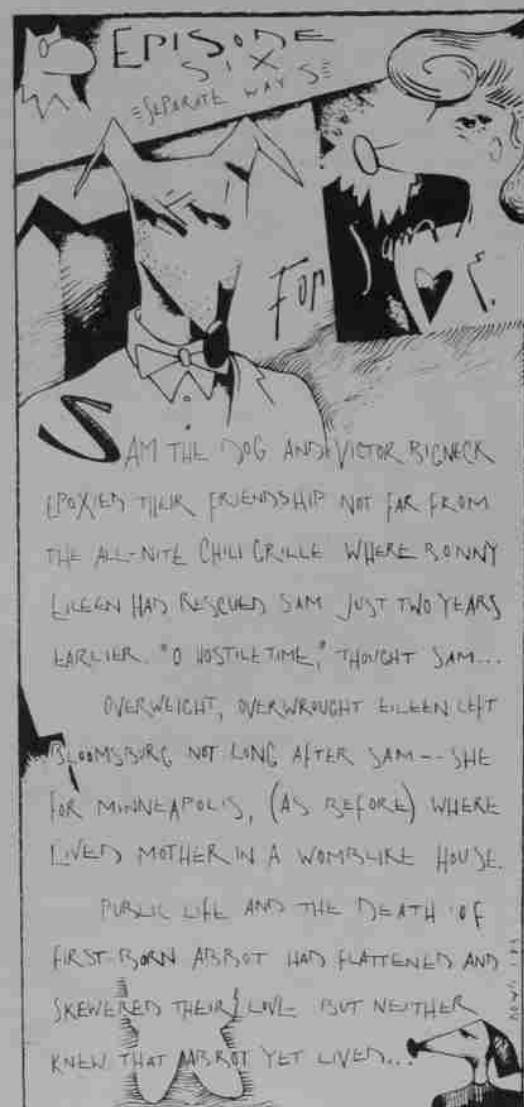 EPISODE
SIX
SEPARATE WAYS
For
SAM THE DOG AND VICTOR BIGNECK
EPOXIED THEIR FRIENDSHIP NOT FAR FROM
THE ALL-NITE CHILI GRILLE WHERE BONNY
EILEEN HAD RESCUED SAM JUST TWO YEARS
EARLIER. "O HOSTILE TIME," THOUGHT SAM...
OVERWEIGHT, OVERWROUGHT EILEEN LEFT
BLOOMSBURG NOT LONG AFTER SAM -- SHE
FOR MINNEAPOLIS, (AS BEFORE) WHERE
LIVED MOTHER IN A WOMBLIKE HOUSE.
PUBLIC LIFE AND THE DEATH OF
FIRST-BORN ABBOT HAD FLATTENED AND
SKEWERED THEIR LOVE BUT NEITHER
KNEW THAT ABBOT YET LIVED...